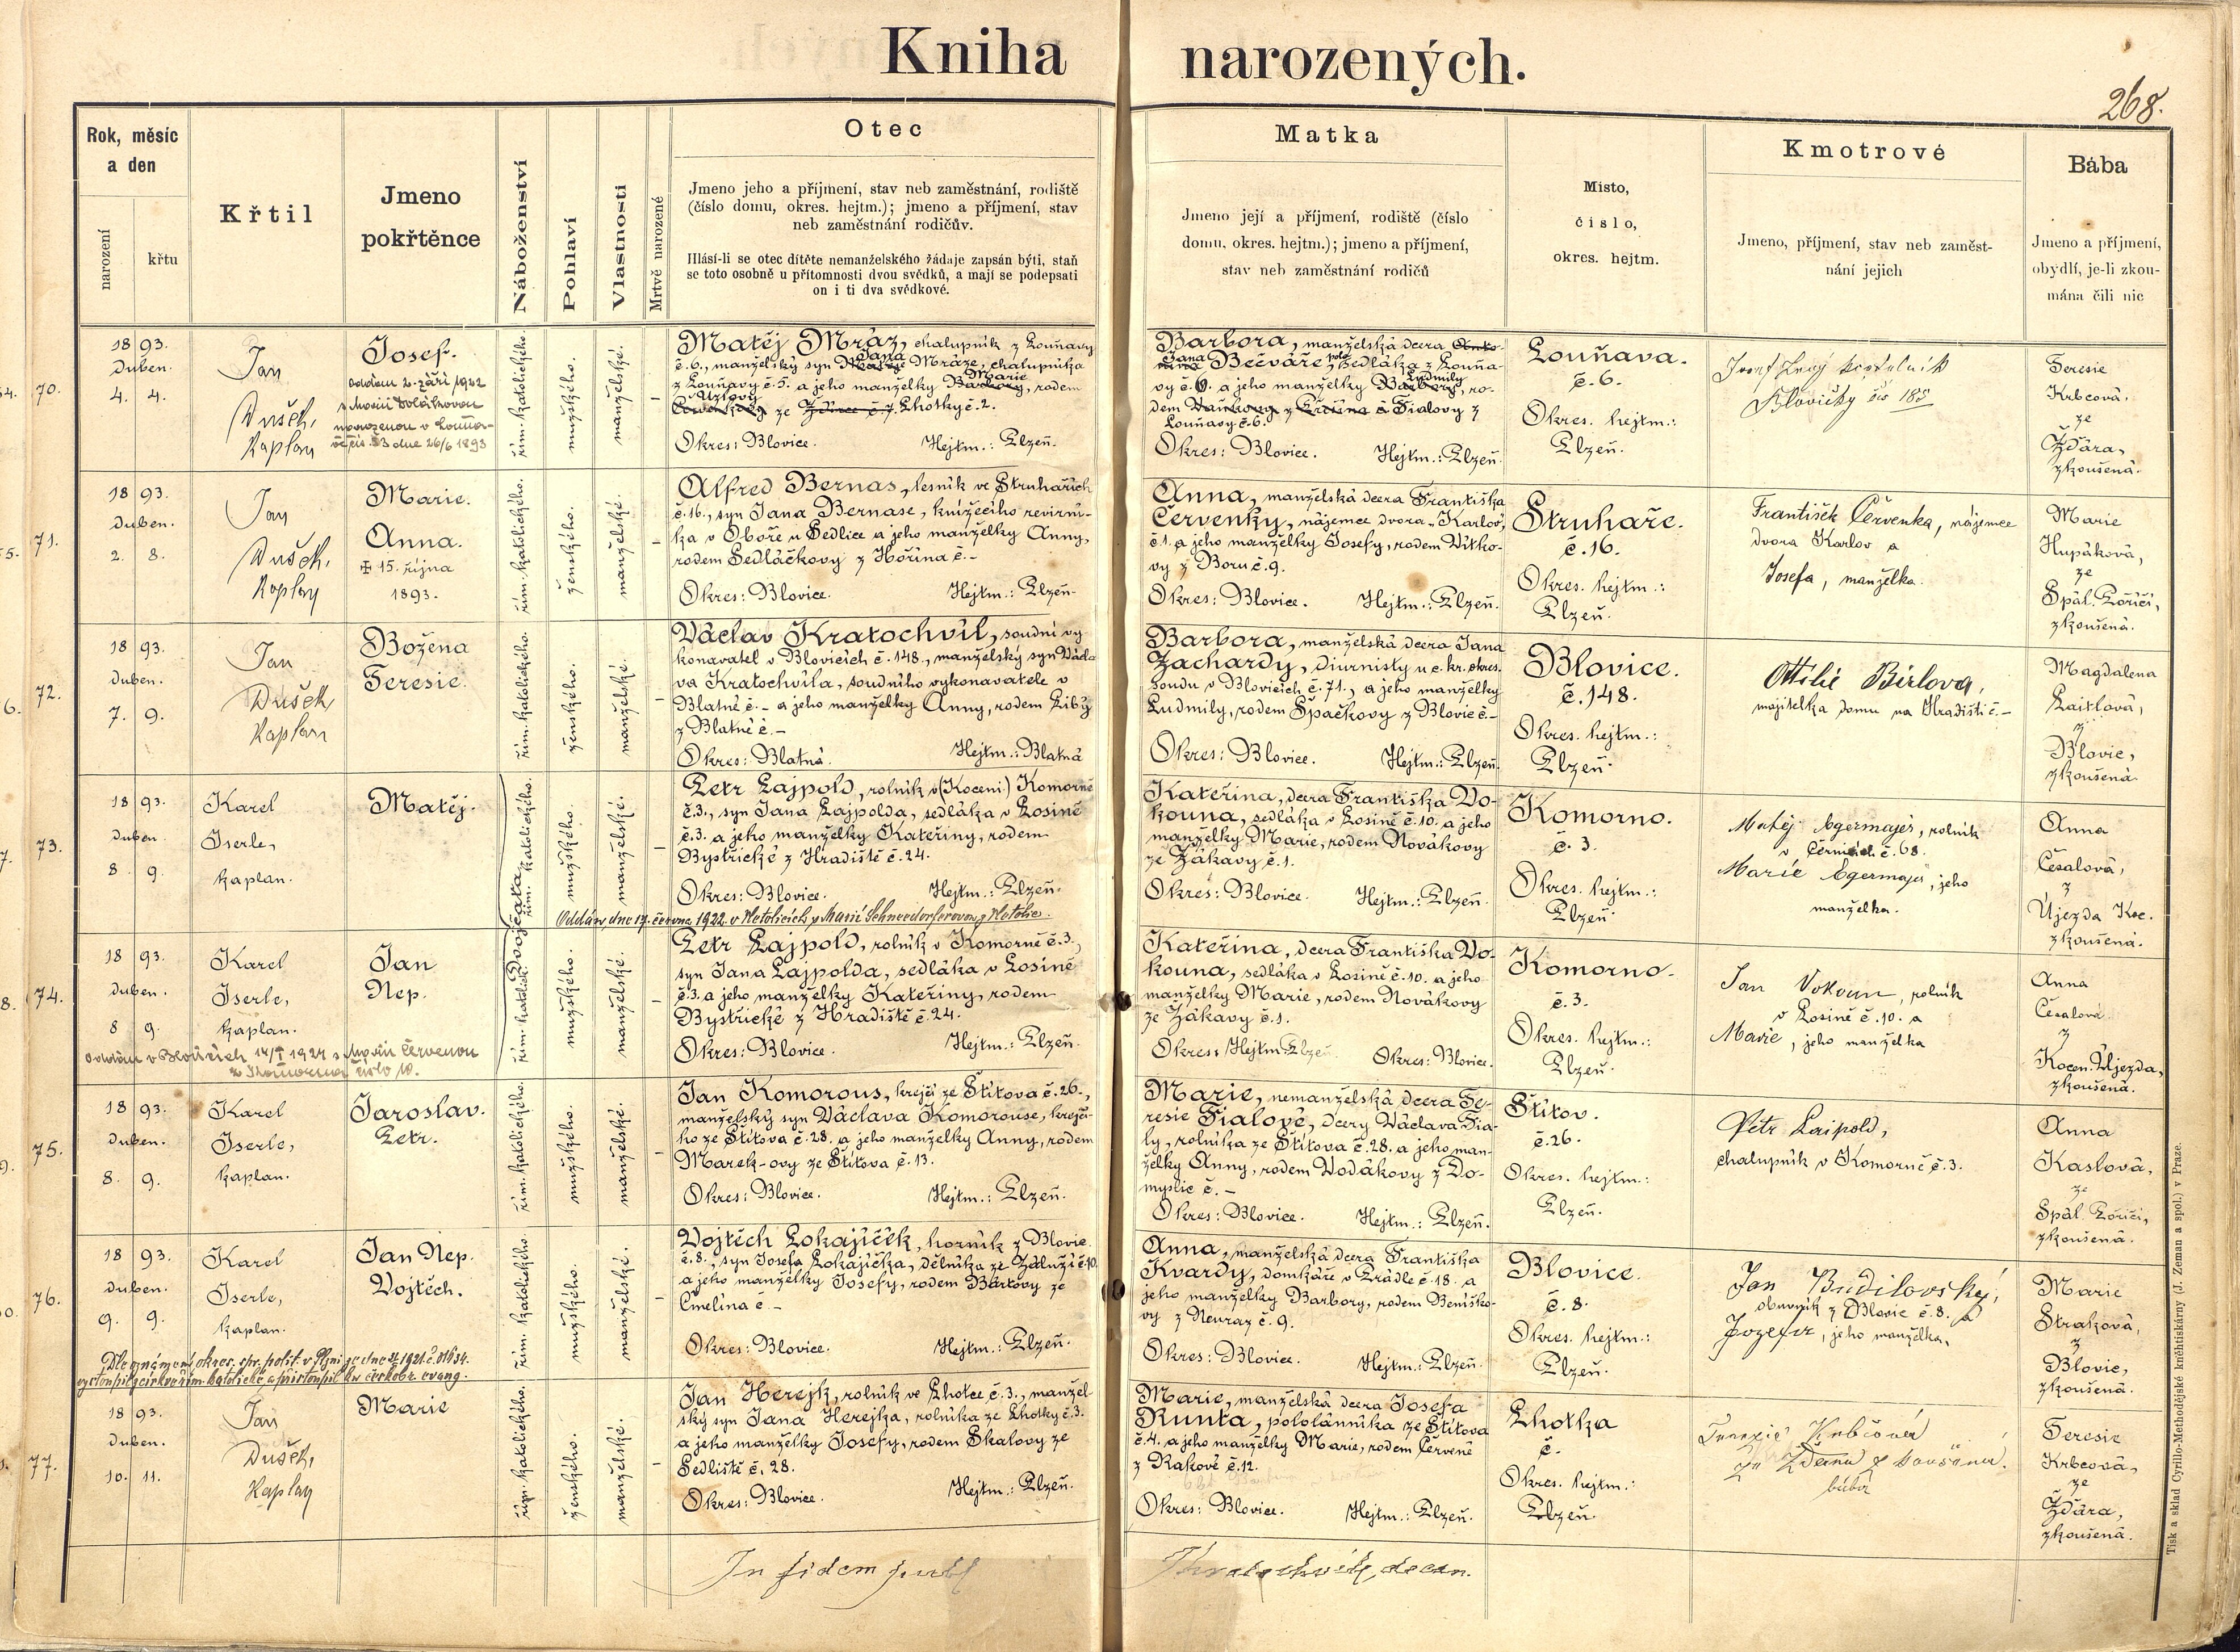 Kniha narozených.
268.
Rok, měsíc
a den
narození
křtu
Křtil
Jmeno
pokřtěnce
Náboženství
Pohlaví
Vlastnosti
Mrtvě narozené
Otec
Jmeno jeho a příjmení, stav neb zaměstnání, rodiště
(číslo domu, okres. hejtm.); jmeno a příjmení, stav
neb zaměstnání rodičův.
Hlásí-li se otec dítěte nemanželského žádaje zapsán býti, staň
se toto osobně u přítomnosti dvou svědků, a mají se podepsati
on i ti dva svědkové.
Matka
Jmeno její a příjmení, rodiště (číslo
domu, okres. hejtm.); jmeno a příjmení,
stav neb zaměstnání rodičů
Misto,
číslo,
okres. hejtm.
Kmotrové
Jmeno, příjmení, stav neb zaměst-
nání jejich
Bába
Jmeno a příjmení,
obydlí, je-li zkou-
mána čili nic
70.
1893.
Duben.
4. 4.
Jan
Dušek,
Kaplan
Josef.
oddán 2. září 1922
s Marií Dolákovou
narozenou v Louňa-
vě čís. 3 dne 26/6 1893
řím. katolického.
mužského.
manželské.
–
Matěj Mráz, chalupník z Louňavy
č.6., manželský syn Jana Mráze, chalupníka
z Louňavy č.5. a jeho manželky Marie, rodem
Uzlovy ze Lhotky č.2.
Okres: Blovice. Hejtm.: Plzeň.
Barbora, manželská dcera
Jana Bečváře, polosedláka z Louňa-
vy č.6. a jeho manželky Ludmily, ro-
dem Fialovy z
Louňavy č.6.
Okres: Blovice. Hejtm.: Plzeň.
Louňava.
č.6.
Okres. hejtm.:
Plzeň.
Josef
čís 185
Teresie
Krbcová,
ze
Ždára,
zkoušená.
71.
1893.
Duben.
2. 8.
Jan
Dušek,
Kaplan
Marie.
Anna.
✠ 15. října
1893.
řím. katolického.
ženského.
manželské.
–
Alfred Bernas, lesník ve Struhařích
č.16., syn Jana Bernase, knížecího revírní-
ka v Oboře u Sedlice a jeho manželky Anny,
rodem Sedláčkovy z Hořína č.–
Okres: Blovice. Hejtm.: Plzeň.
Anna, manželská dcera Františka
Červenky, nájemce dvora „Karlov",
č.1. a jeho manželky Josefy, rodem Vítko-
vy z Boru č.9.
Okres: Blovice. Hejtm.: Plzeň.
Struhaře.
č.16.
Okres. hejtm.:
Plzeň.
František Červenka, nájemce
dvora Karlov a
Josefa, manželka.
Marie
Hupáková,
ze
Spál. Poříčí,
zkoušená.
72.
1893.
Duben.
7. 9.
Jan
Dušek
Kaplan
Božena
Teresie.
řím. katolického.
ženského.
manželské.
–
Václav Kratochvíl, soudní vy
konavatel v Blovicích č.148., manželský syn Václa
va Kratochvíla, soudního vykonavatele v
Blatné č.– a jeho manželky Anny, rodem Říbý
z Blatné č.–
Okres: Blatná. Hejtm.: Blatná
Barbora, manželská dcera Jana
Zachardy, diurnisty u c. kr. okres.
soudu v Blovicích č.71., a jeho manželky
Ludmily, rodem Špačkovy z Blovic č.–
Okres: Blovice. Hejtm.: Plzeň.
Blovice.
č.148.
Okres. hejtm.:
Plzeň.
Ottilie Bírlova,
majitelka domu na Hradišti č.–
Magdalena
z
Blovic,
zkoušená.
73.
1893.
Duben.
8. 9.
Karel
Iserle,
kaplan.
Matěj.
Dvojčata.
řím. katolického.
mužského.
manželské.
–
Petr Lajpold, rolník v (Koceni) Komorně
č.3., syn Jana Lajpolda, sedláka v Losiné
č.3. a jeho manželky Kateřiny, rodem
Bystřické z Hradiště č.24.
Okres: Blovice. Hejtm.: Plzeň.
Oddán dne 17. června 1922. v Netolicích s Marií Schneedorferovou z Netolic.
Kateřina, dcera Františka Vo-
kouna, sedláka v Losiné č.10. a jeho
manželky Marie, rodem Novákovy
ze Žákavy č.1.
Okres: Blovice. Hejtm.: Plzeň.
Komorno.
č. 3.
Okres. hejtm.:
Plzeň.
Matěj Agermajer, rolník
v Černicích č.68.
Marie Agermajer, jeho
manželka.
Anna
Česalová,
z
Újezda Koc.
zkoušená.
74.
1893.
Duben.
8 9.
Karel
Iserle,
kaplan.
Jan
Nep.
oddán v Blovicích 14/I 1924 s Marií Červenou
z Komorna číslo 10.
řím. katolick.
mužského.
manželské.
–
Petr Lajpold, rolník v Komorně č.3.,
syn Jana Lajpolda, sedláka v Losiné
č.3. a jeho manželky Kateřiny, rodem
Bystřické z Hradiště č.24.
Okres: Blovice. Hejtm.: Plzeň.
Kateřina, dcera Františka Vo-
kouna, sedláka v Losiné č.10. a jeho
manželky Marie, rodem Novákovy
ze Žákavy č.1.
Okres: Hejtm. Plzeň. Okres: Blovice.
Komorno.
č.3.
Okres. hejtm.:
Plzeň.
Jan Vokoun, rolník
v Losiné č.10. a
Marie, jeho manželka
Anna
Česalová
z
Kocen. Újezda,
zkoušená.
75.
1893.
Duben.
8. 9.
Karel
Iserle,
kaplan.
Jaroslav.
Petr.
řím. katolického.
mužského.
manželské.
–
Jan Komorous, krejčí ze Štítova č.26.,
manželský syn Václava Komorouse, krejčí-
ho ze Štítova č.28. a jeho manželky Anny, rodem
Marek-ovy ze Štítova č.13.
Okres: Blovice. Hejtm.: Plzeň.
Marie, nemanželská dcera Te-
resie Fialové, dcery Václava Fia-
ly, rolníka ze Štítova č.28. a jeho man-
želky Anny, rodem Vodákovy z Do-
myslic č.–
Okres: Blovice. Hejtm.: Plzeň.
Štítov.
č.26.
Okres. hejtm.:
Plzeň.
Petr Laipold,
chalupník v Komorně č.3.
Anna
Kaslová,
ze
Spál. Poříčí,
zkoušená.
76.
1893.
Duben.
9. 9.
Karel
Iserle,
kaplan.
Jan Nep.
Vojtěch.
Dle oznámení okres. spr. polit. v Plzni ze dne 1921
vystoupil z církve řím. katolické a přistoupil k církvi českobr. evang.
řím. katolického.
mužského.
manželské.
–
Vojtěch Lokajíček, horník z Blovic
č.8., syn Josefa Lokajíčka, dělníka ze Záluží č.10.
a jeho manželky Josefy, rodem Bártovy ze
Čmelína č.–
Okres: Blovice. Hejtm.: Plzeň.
Anna, manželská dcera Františka
Kvardy, domkáře v Prádle č.18. a
jeho manželky Barbory, rodem Beníško-
vy z Neuraz č.9.
Okres: Blovice. Hejtm.: Plzeň.
Blovice.
č.8.
Okres. hejtm.:
Plzeň.
Jan Budilovský,
obuvník z Blovic č.8. a
Jozefa, jeho manželka,
Marie
Straková,
z
Blovic,
zkoušená.
77.
1893.
Duben.
10. 11.
Jan
Dušek,
Kaplan
Marie
řím. katolického.
ženského.
manželské.
–
Jan Herejk, rolník ve Lhotce č.3., manžel
ský syn Jana Herejka, rolníka ze Lhotky č.3.
a jeho manželky Josefy, rodem Skalovy ze
Sedliště č.28.
Okres: Blovice. Hejtm.: Plzeň.
Marie, manželská dcera Josefa
Runta, pololánníka ze Štítova
č.4. a jeho manželky Marie, rodem Červené
z Rakové č.12.
Okres: Blovice. Hejtm.: Plzeň.
Lhotka
č.
Okres. hejtm.:
Plzeň.
Terezie Krbcová
ze Ždáru zkoušená
bába
Teresie
Krbcová,
ze
Ždára,
zkoušená.
In fidem publ
Kratochvíl, decan.
Tisk a sklad Cyrillo-Methodějské knihtiskárny (J. Zeman a spol.) v Praze.